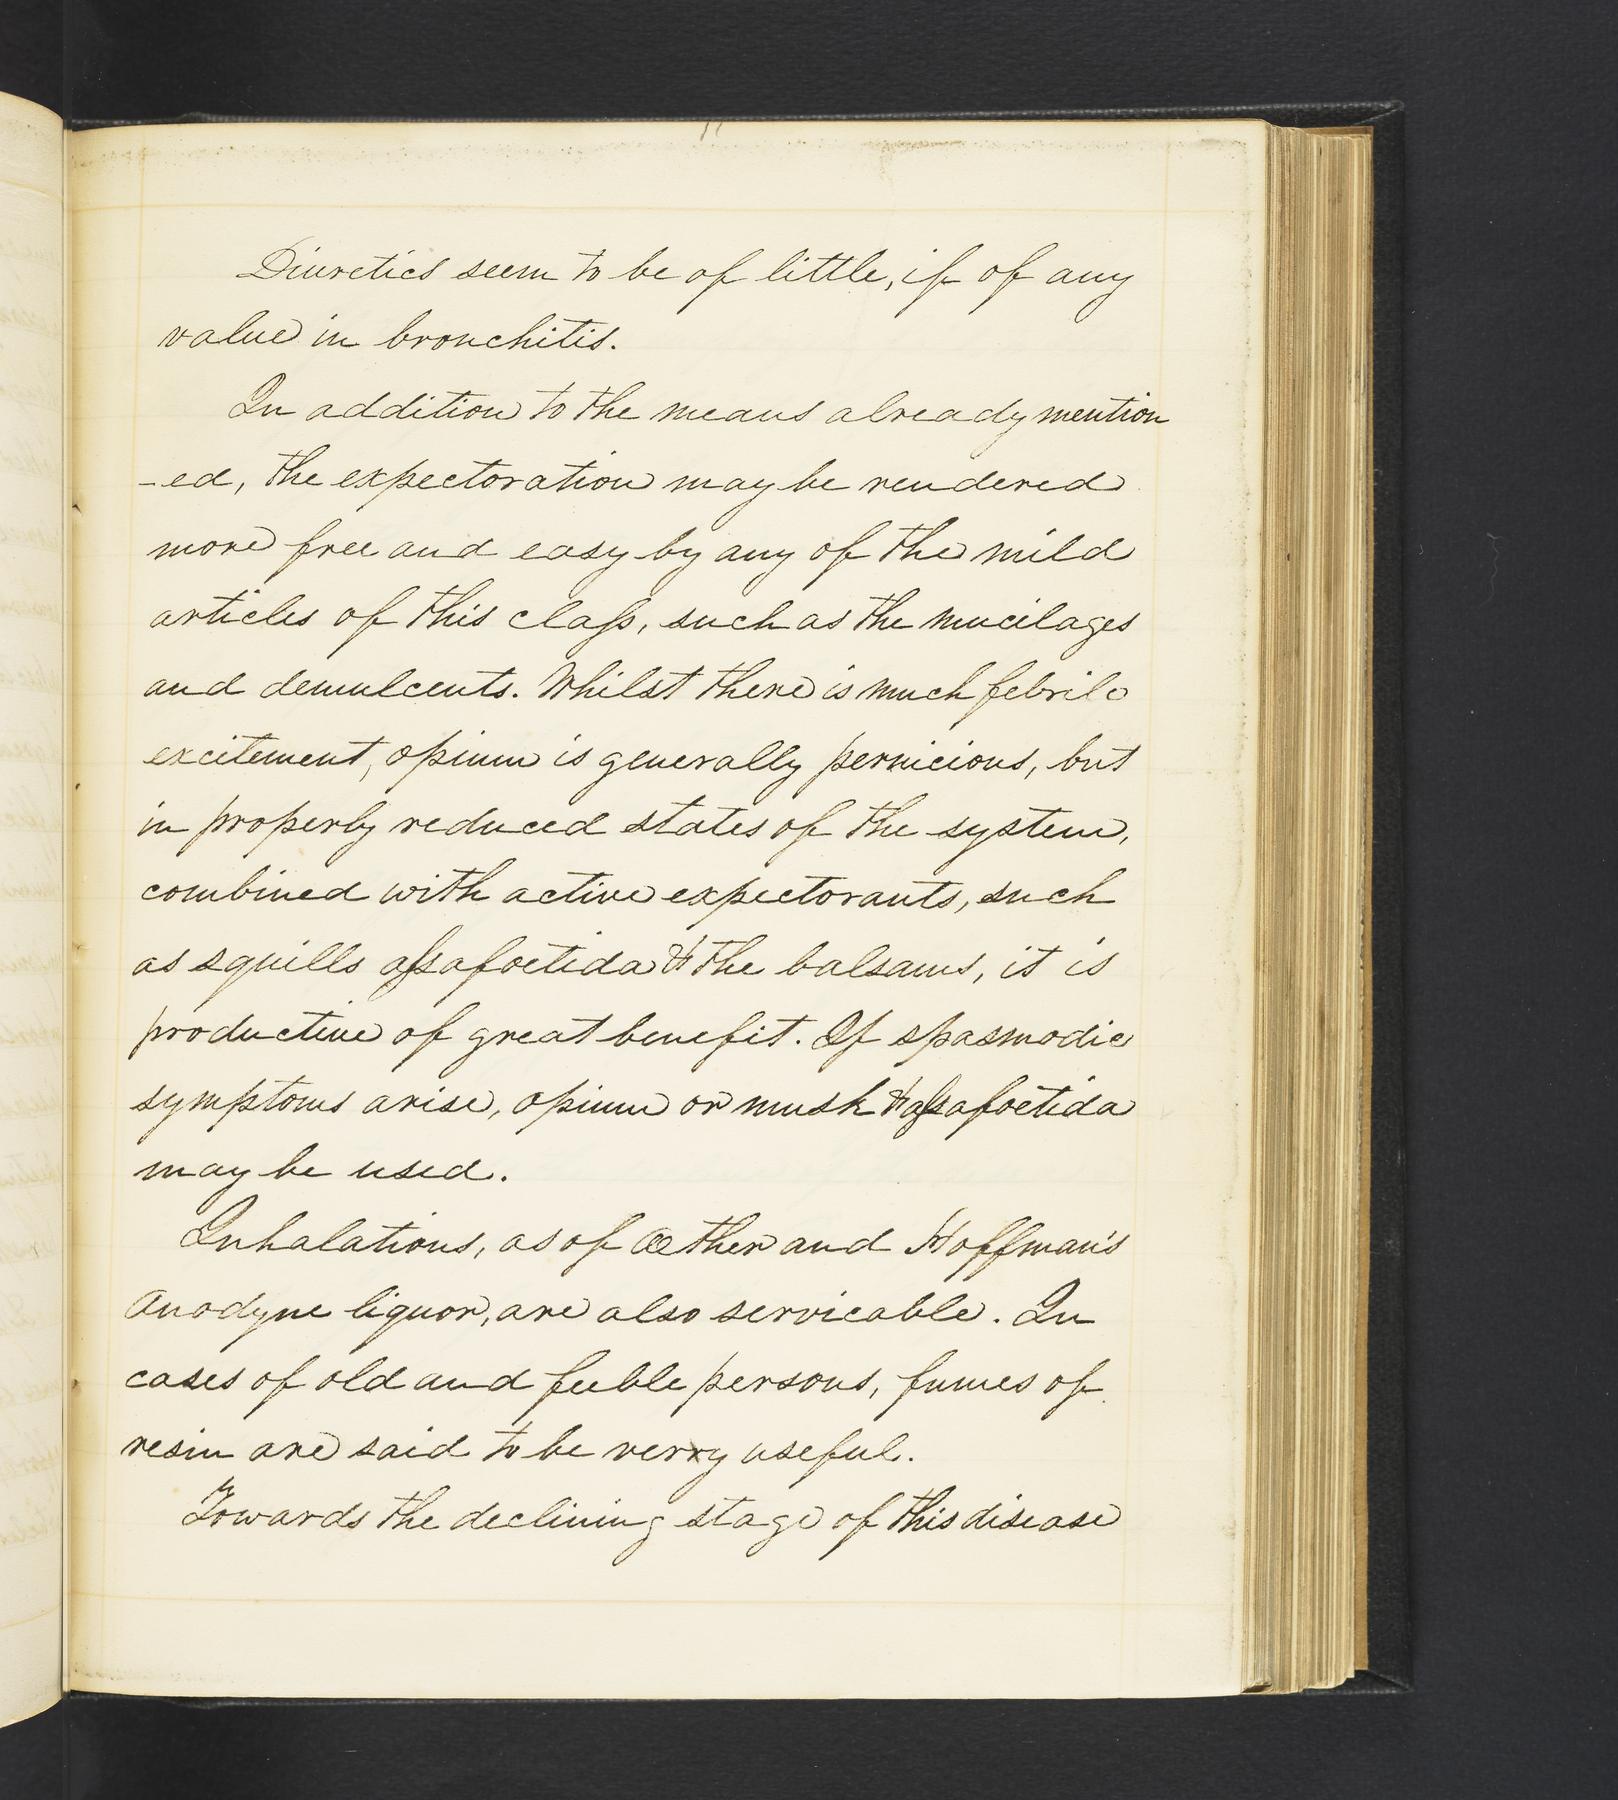 Diuretics seem to be of little, if of any
value in bronchitis.
In addition to the means already mention
-ed, the expectoration may be rendered
more free and easy by any of the mild
articles of this class, such as the mucilages
and demulcents. Whilst there is much febrile
excitement, opium is generally pernicious, but
in properly reduced states of the system,
combined with active expectorants, such
as squills assafoetida & the balsams, it is
productive of great benefit. If spasmodic
symptoms arise, opium or musk & assafoetida
may be used.
Inhalations, as of Æther and Hoffman's
Anodyne liquor, are also servicable. In
cases of old and feeble persons, fumes of
resin are said to be verry useful.
Towards the declining stage of this disease